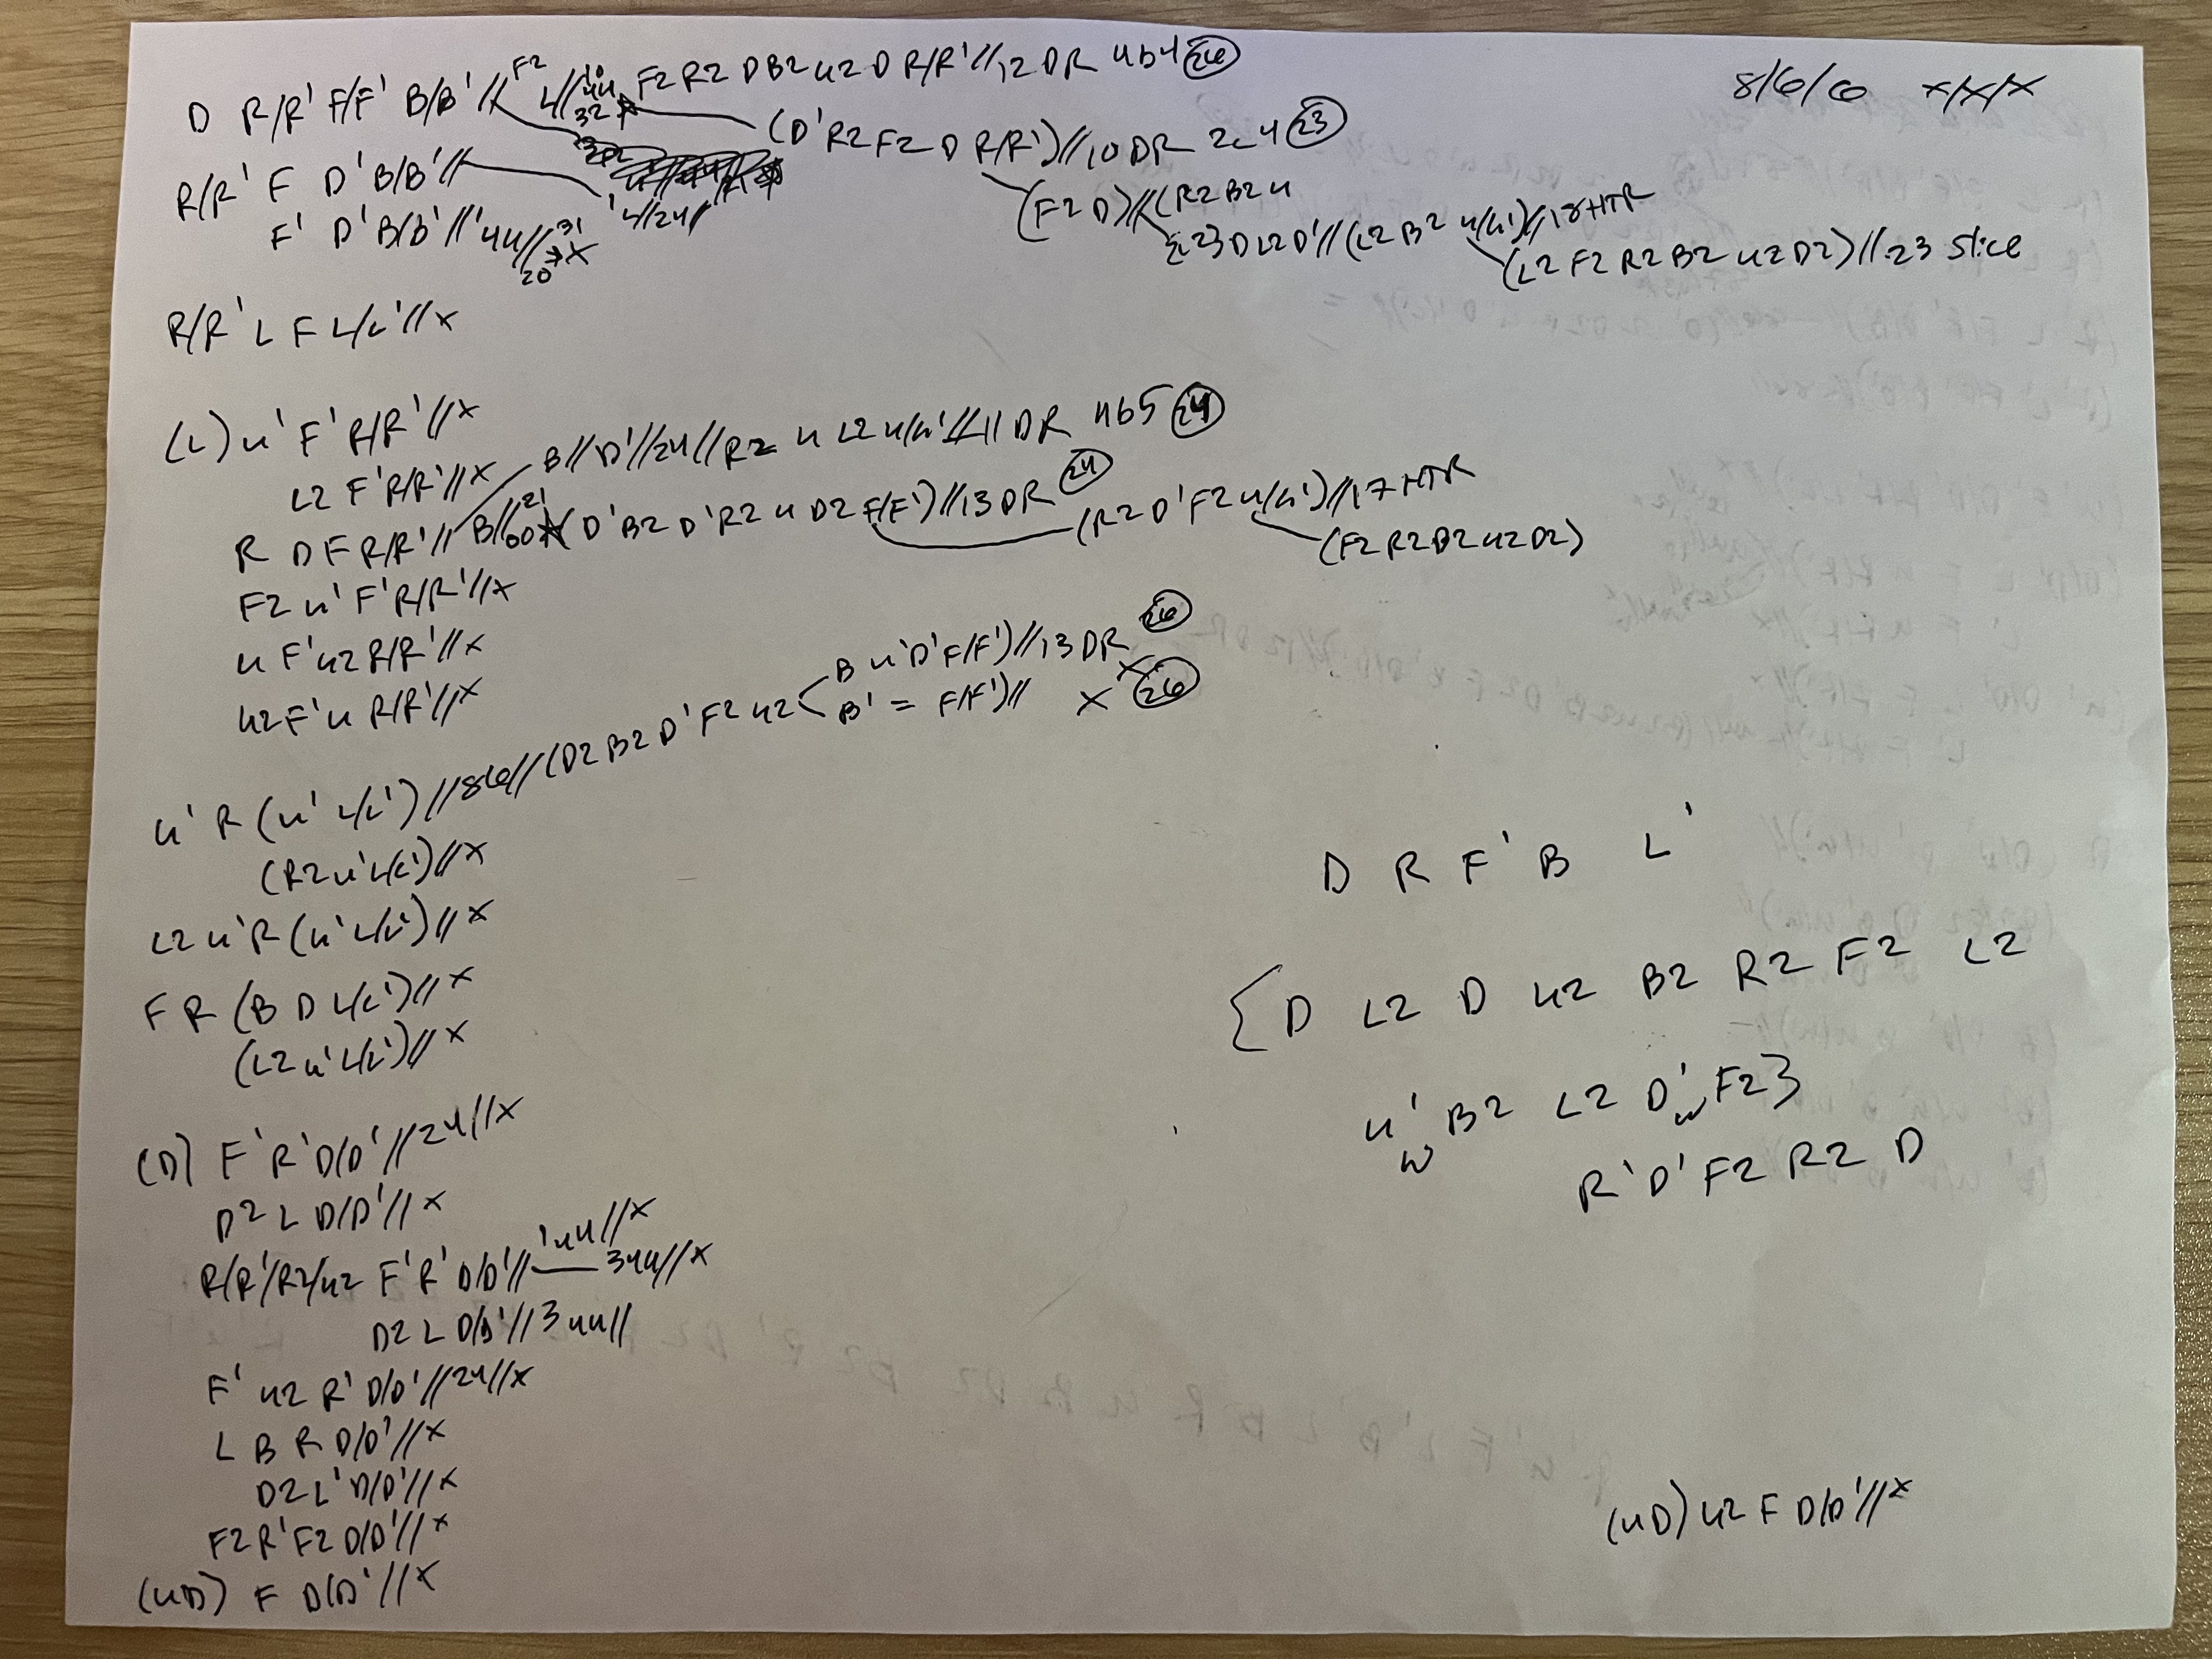 8/6/6 x/x/x
D R/R' F/F' B/B' // F2 4//44 F2 R2 D B2 u2 D R/R' // 12 DR 4b4 26
32
(D' R2 F2 D R/R') // 10 DR 2c4 23
R/R' F D' B/B' // 4//24/
(F2 D) // (R2 B2 u
F' D' B/B' // '44// 31 x
20
{23 D L2 D' // (L2 B2 u/u') // 18 HTR
(L2 F2 R2 B2 u2 D2) // 23 slice
R/R' L F L/L' // x
(L) u' F' R/R' // x
L2 F' R/R' // x
B // D' // 24 // R2 u L2 u/u' // 11 DR 4b5 24
R D F R/R' // B // (D' B2 D' R2 u D2 F/F') // 13 DR 24
(R2 D' F2 u/u') // 17 HTR
(F2 R2 B2 u2 D2)
F2 u' F' R/R' // x
u F' u2 R/R' // x
u2 F' u R/R' // x
u' R (u' L/L') // 86 // (D2 B2 D' F2 u2
B u' D' F/F') // 13 DR 26
B' = F/F') // x 26
(R2 u' L/L') // x
L2 u' R (u' L/L') // x
F R (B D L/L') // x
(L2 u' L/L') // x
(D) F' R' D/D' // 24 // x
D2 L D/D' // x
R/R'/R2/u2 F' R' D/D' // 144 // x
344 // x
D2 L D/D' // 344 //
F' u2 R' D/D' // 24 // x
L B R D/D' // x
D2 L' D/D' // x
F2 R' F2 D/D' // x
(uD) F D/D' // x
D R F' B L'
{D L2 D u2 B2 R2 F2 L2
u'w B2 L2 D'w F2}
R' D' F2 R2 D
(uD) u2 F D/D' // x